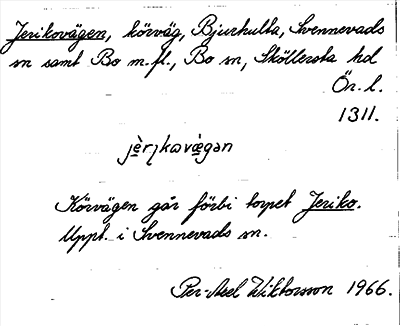 Jerikovägen, körväg, Bjurhulta, Svennevads
sn samt Bo m.fl., Bo sn, Sköllersta hd
Ör. l.
1311.
jèrikovägən
Körvägen går förbi torpet Jeriko.
Uppt. i Svennevads sn.
Per-Axel Wiktorsson 1966.